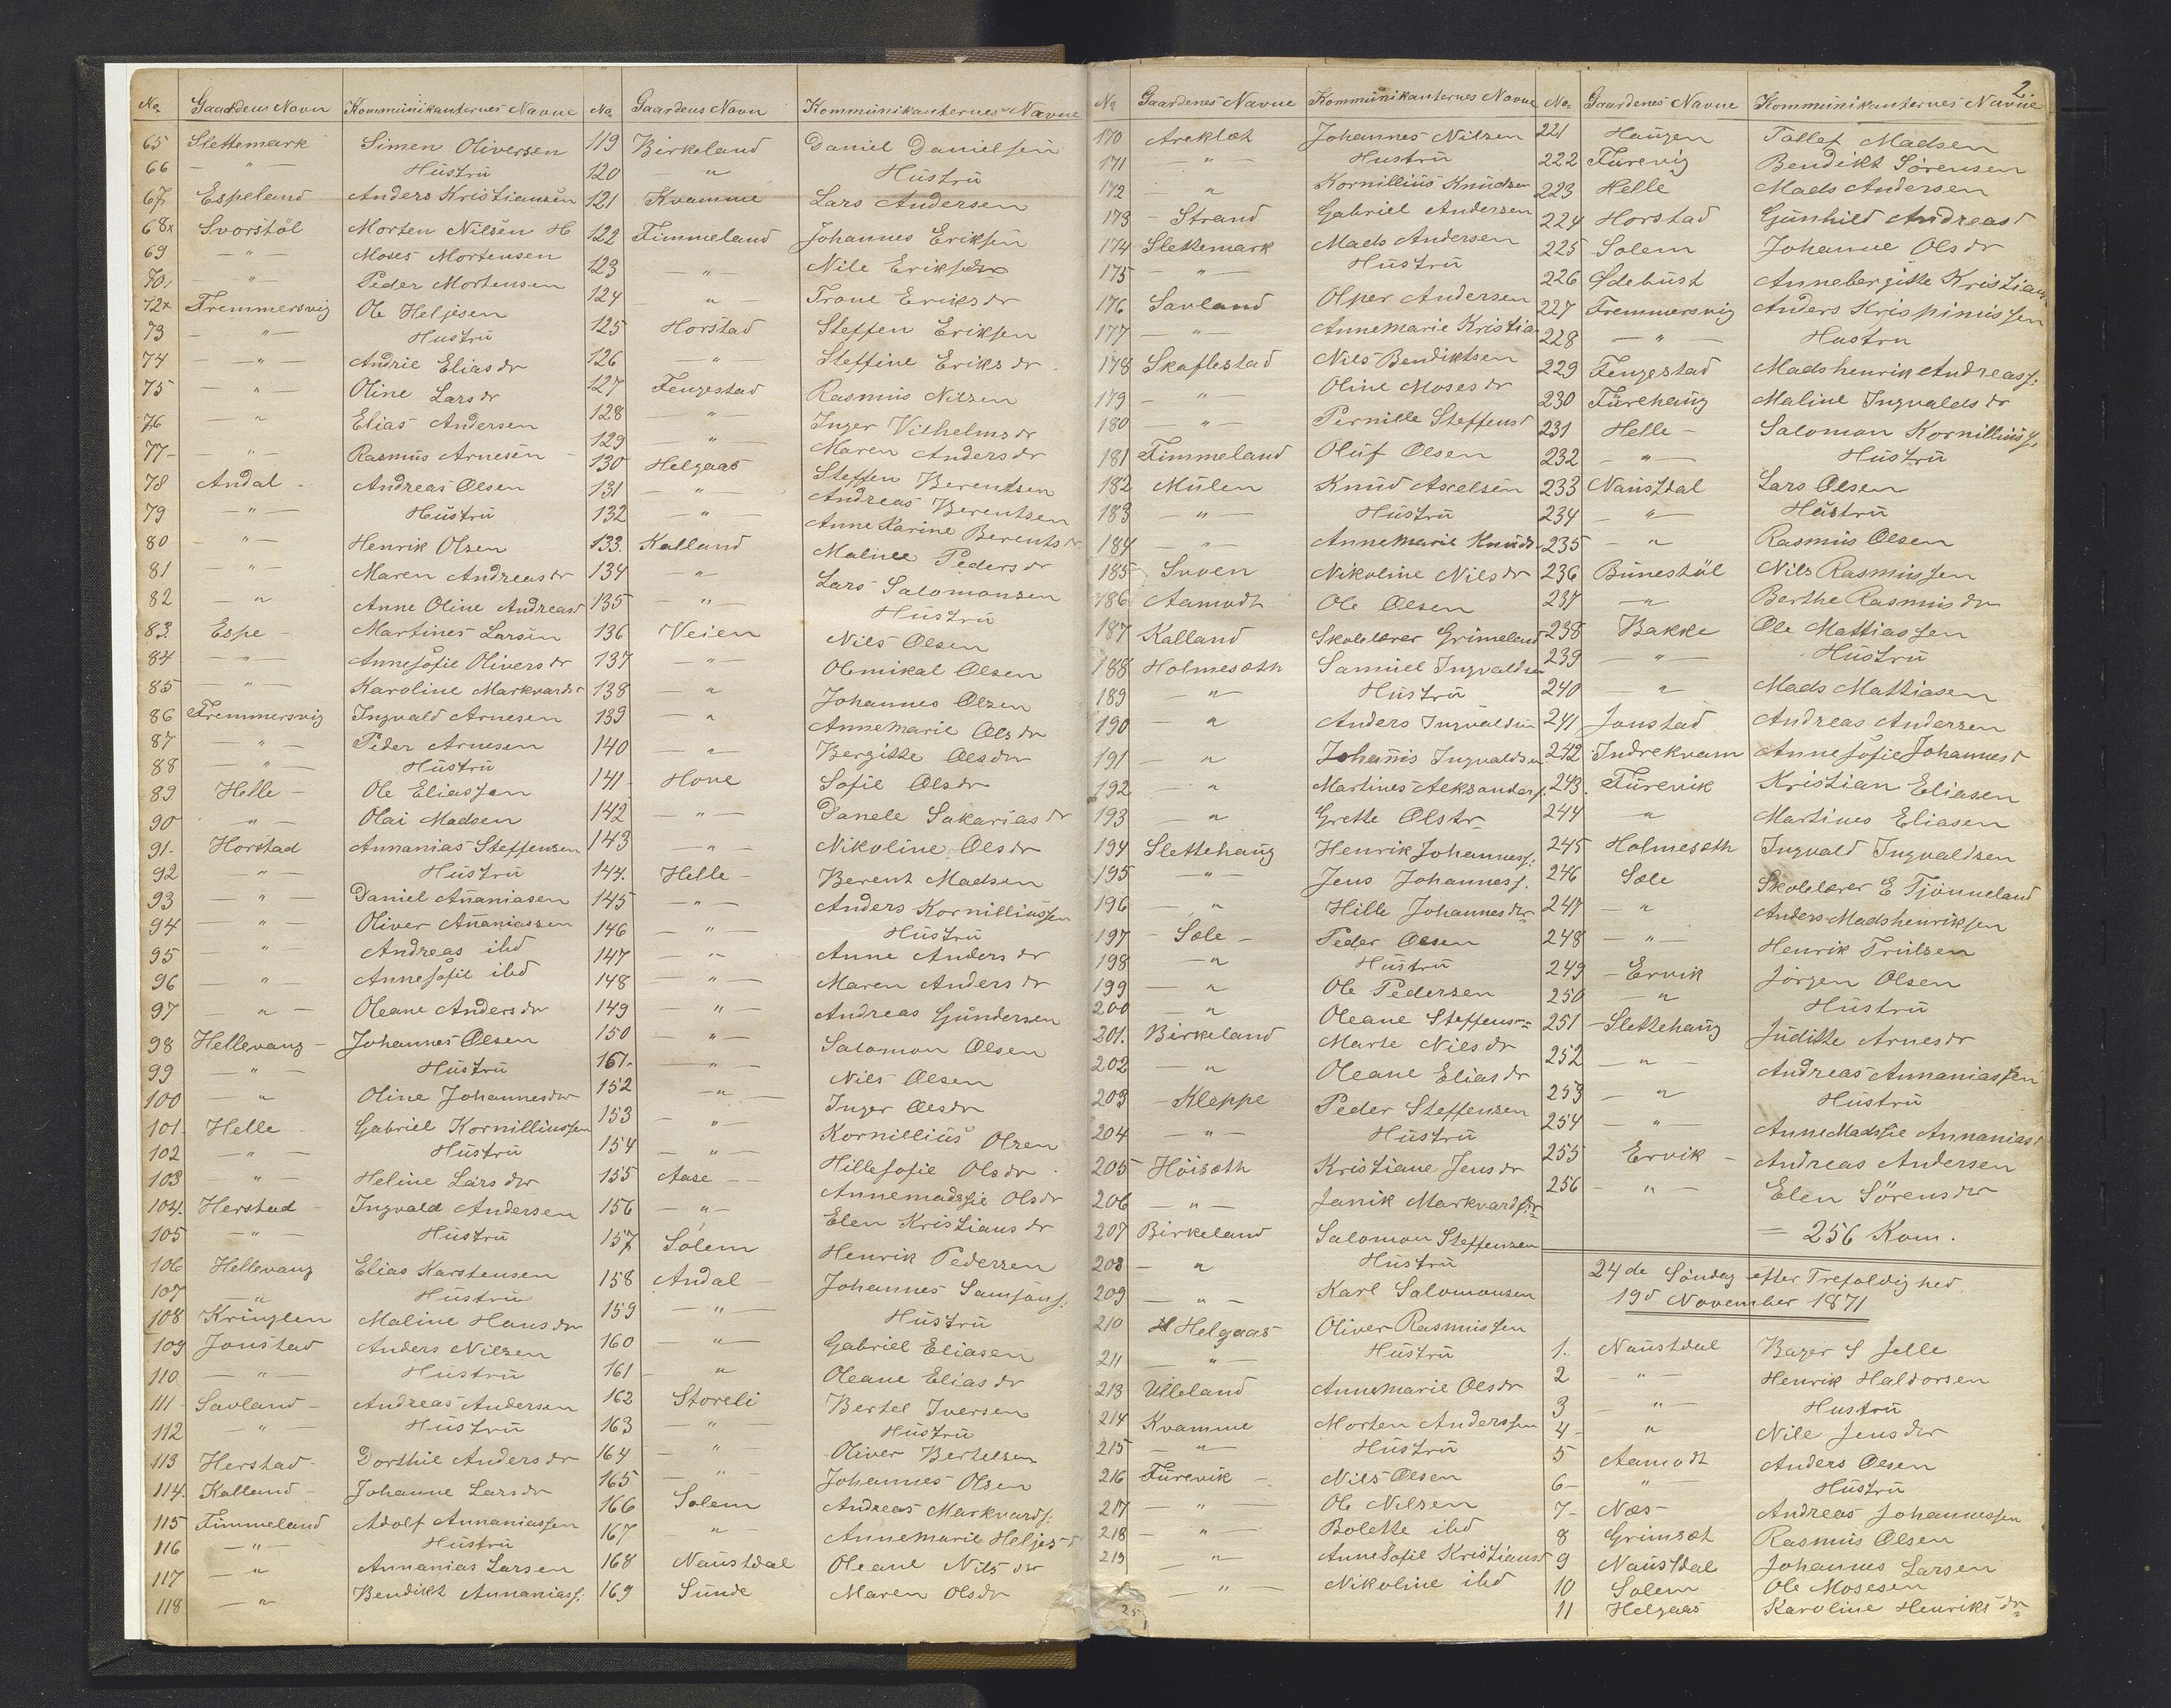 No. Gaardens Navn Kommunikanternes Navne
65 Slettemark Simen Oliversen
66 - " - Hustru
67 Espeland Anders Kristiansen
68x Svorstöl Morten Nilsen H
69 - " - Moses Mortensen
70, - " - Peder Mortensen
72x Fremmersvig Ole Heljesen
73 - " - Hustru
74 - " - Andrie Elias dr
75 - " - Oline Lars dr
76 - " Elias Andersen
77- - " - Rasmus Arnesen
78 Andal - Andreas Olsen
79 - " - Hustru
80 - " - Henrik Olsen
81 - " - Maren Andreas dr
82 - " Anne Oline Andreasd
83. Espe - Martines Larsen
84 - " - Annesofie Olivers dr
85 - " - Karoline Markvardsd
86 Fremmersvig Ingvald Arnesen
87 - " - Peder Arnesen
88 - " - Hustru
89 Helle - Ole Eliassen
90 - " - Olai Madsen
91. Horstad Annanias Steffensen
92 - " - Hustru
93 - " - Daniel Ananiasen
94 - " - Oliver Ananiassen
95 - " - Andreas ibd
96 - " - Annesofie ibd
97 - " - Oleane Anders dr
98 Hellevang - Johannes Olsen
99 - " - Hustru
100 - " Oline Johannesdr
101. Helle - Gabriel Kornilliussen
102 - " - Hustru
103 - " - Heline Lars dr
104. Herstad - Ingvald Andersen
105 - " - Hustru
106 Hellevang Elias Karstensen
107 - " Hustru
108 Kringlen Maline Hans dr
109 Jonstad Anders Nilsen
110. - " - Hustru
111 - Savland - Andreas Andersen
112 - " Hustru
113 Herstad - Dorthie Anders dr
114. Kalland - Johanne Lars dr
115 Timmeland Adolf Annaniassen
116 - " - Hustru
117 - " Annanias Larsen
118 - " Bendikt Annanias s:
No. Gaardens Navn Kommunikanternes Navne
119 Birkeland Daniel Danielsen
120 - " Hustru
121 Kvamme Lars Andersen
122 Timmeland Johannes Eriksen
123 - " - Nile Eriksdr
124 " - Trone Eriks dr
125 Horstad Steffen Eriksen
126 - " Steffine Eriks dr.
127 Fengestad Rasmus Nilsen
128 - " - Inger Vilhelms dr
129 - " - Maren Anders dr
130 Helgaas Steffen Berentsen
131 - " Andreas Berentsen
132 - " - Anne Karine Berents dr
133. Kalland Maline Peders dr
134 - " - Lars Salomonsen
135 - " - Hustru
136 Veien Nils Olsen
137 - " - Olemikal Olsen
138 - " Johannes Olsen
139 - " Annemarie Ols dr
140 - " - Bergitte Olsdr
141 - Hove Sofie Olsdr
142 - " - Danele Sakarias dr
143 - " - Nikoline Olsdr
144. Helle - Berent Madsen
145 - " - Anders Kornilliussen
146 - " - Hustru
147 - " - Anne Anders dr
148 - " - Maren Anders dr
149 - " - Andreas Gundersen
150 - " - Salomon Olsen
161. - " - Nils Olsen
152 - " - Inger Olsdr
153 - " - Kornillius Olsen
154 - " - Hillesofie Olsdr.
155 Aase - - Annemadssie Olsdr
156 - " - Elen Kristians dr
157 Solem Henrik Pedersen
158 Andal - Johannes Samsons:
159 - " - Hustru
160 " - Gabriel Eliasen
161 - " Oleane Elias dr
162 Storeli Bertel Iversen
163 - " - Hustru
164 - " Oliver Bertelsen
165 - " - Johannes Olsen
166 Solem Andreas Markvards:
167 - " Annemarie Heljes d
168 Naustdal Oleane Nils dr
169 Sunde Maren Olsdr
No Gaardenes Navne Kommunikanternes Navne
170 Areklet Johannes Nilsen
171 - " - Hustru
172 - " Kornillius Knudsen
173 - Strand Gabriel Andersen
174 Slettemark Mads Andersen
175 - " - Hustru
176 Savland Olper Andersen
177 - " - Annemarie Kristia
178 Skaflestad Nils Bendiktsen
179 - " - Oline Moses dr
180 - " - Pernille Steffensd
181 Timmeland Oluf Olsen
182 Mulen Knud Axelsen
183 - " - Hustru
184 - " - Annemarie Knuds
185 Svoen Nikoline Nils dr
186 Aamodt Ole Olsen
187 Kalland Skolelærer Grimeland
188 Holmesæth Samuel Ingvaldsen
189 - " - Hustru
190 - " Anders Ingvaldsen
191 - " Johannis Ingvaldsen
192 - " Martines Aleksanders.
193 - " Grethe Olsdr
194 Slettehaug Henrik Johanness:
195 - " - Jens Johanness.
196 - " Hille Johannesdr
197 - Sole - Peder Olsen
198 - " Hustru
199 - " Ole Pedersen
200 - " Oleane Steffens
201. Birkeland Marte Nils dr
202 - " Oleane Elias dr
203 - Kleppe Peder Steffensen
204 - " - Hustru
205 Höisæth Kristiane Jens dr
206 - " - Janik Markvardsdr
207 Birkeland Salomon Steffensen
208 - " Hustru
209 - " - Karl Salomonsen
210 Helgaas Oliver Rasmussen
211 - " - Hustru
213 Ulleland Annemarie Olsdr
214 Kvamme Morten Anderssen
215 - " - Hustru
216 Furevik - Nils Olsen
217 - " - Ole Nilsen
218 - " - Bolette ibd
219 - " - Annesofie Kristiansd
- " - Nikoline ibd
25
2.
No. Gaardenes Navne Kommunikanternes Navne
221 Haugen Tallef Madsen
222 Furevig Bendikt Sörensen
223 Helle Mads Andersen
224 Horstad Gunhild Andreasd
225 Solem Johanne Ols dr
226 Ödebust Annebergitte Kristians
227 Fremmersvig Anders Krispinussen
228 - " - Hustru
229 Fengestad Madshenrik Andreass:
230 Furehaug Maline Ingvalds dr
231 Helle - Salomon Kornillius s.
232 - " - Hustru
233 Naustdal Lars Olsen
234 - " - Hustru
235 - " Rasmus Olsen
236 Bunestöl Nils Rasmussen
237 - " Berthe Rasmus dr
238 Bakke Ole Mattiassen
239 - " - Hustru
240 - " Mads Mattiasen
241 Jonstad Andreas Andersen
242 Indrekvam Annesofie Johannesd
243. Furevik Kristian Eliasen
244 - " Martines Eliasen
245 Holmesæth Ingvald Ingvaldsen
246 Sole Skolelærer E Tjönneland
247 - " Anders Madshenriksen
248 - " - Henrik Trulsen
249 - Ervik Jörgen Olsen
250 - " Hustru
251 - Slettehaug Juditte Arnesdr
252 - " - Andreas Annaniassen
253 - " Hustru
254 - " - Annemadssie Annaniasd
255 Ervik - Andreas Andersen
256 - " - Elen Sörens dr
= 256 Kom.
24de Söndag efter Trefoldighed
19d November 1871
1. Naustdal Bager S Jelle
2 - " - Henrik Haldorsen
3 - " - Hustru
4 - " Nille Jens dr
5 Aamodt Anders Olsen
6 - " Hustru
7 - Næs Andreas Johannessen
8 Grimsæt Rasmus Olsen
9 Naustdal Johannes Larsen
10 Solem Ole Mosesen
11 Helgaas Karoline Henriks dr